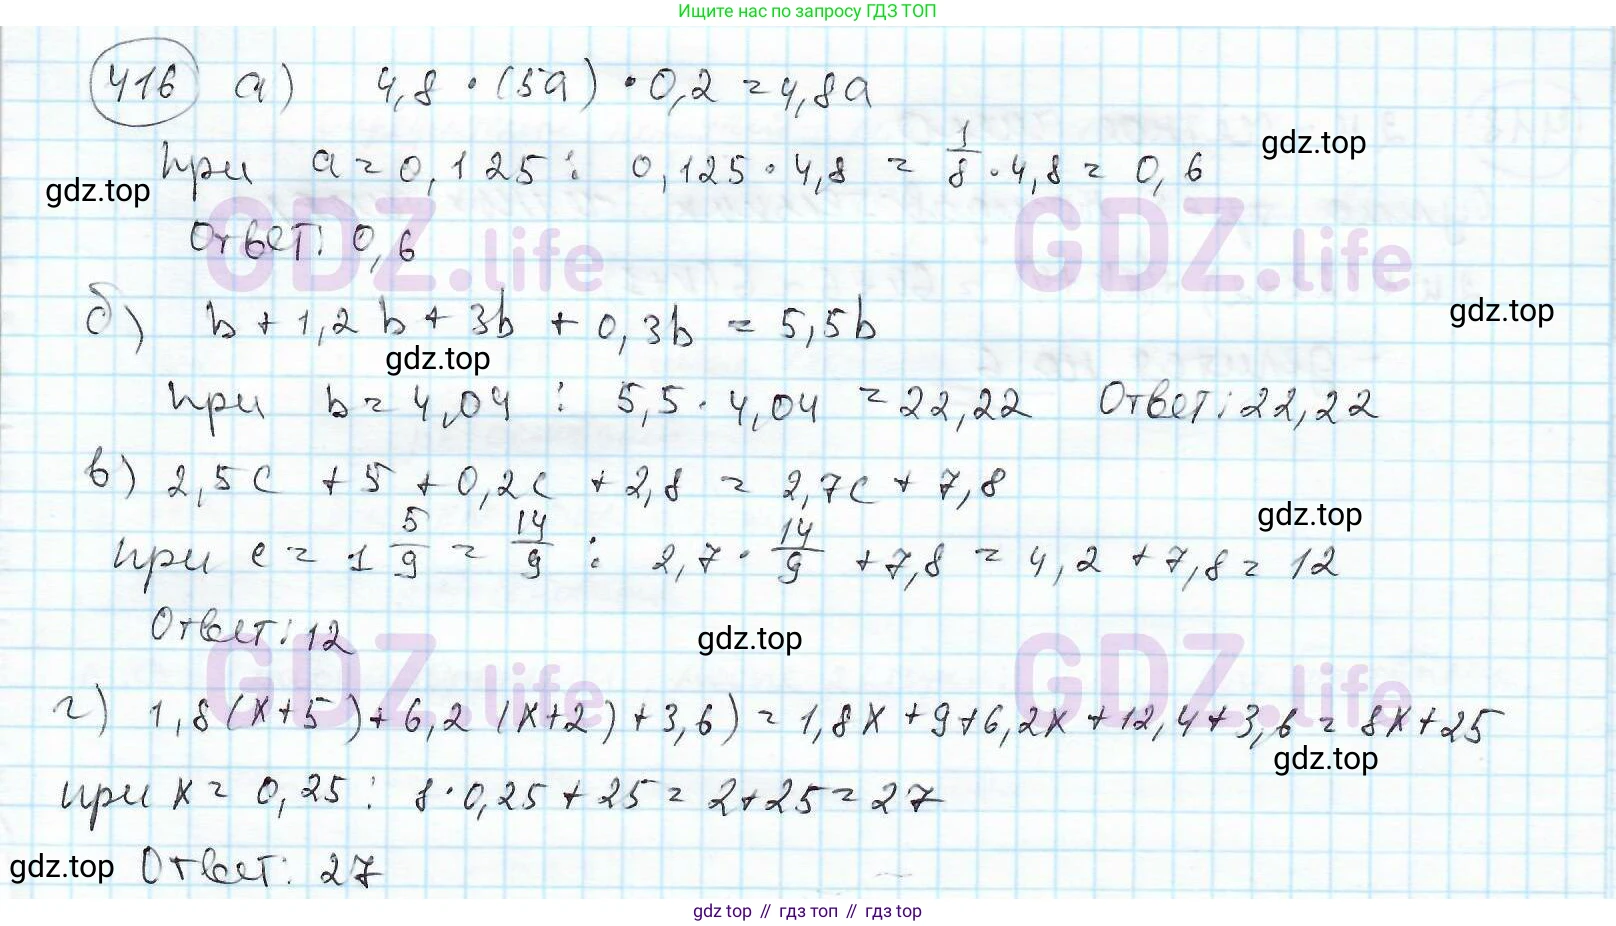 Ищите нас по запросу ГДЗ ТОП
416 а) 4,8 · (5а) · 0,2 = 4,8а
gdz.top
при а = 0,125 : 0,125 · 4,8 = 1/8 · 4,8 = 0,6
gdz.top
Ответ: 0,6
GDZ.life GDZ.life
б) b + 1,2b + 3b + 0,3b = 5,5b
gdz.top
gdz.top
при b = 4,04 : 5,5 · 4,04 = 22,22 Ответ: 22,22
в) 2,5с + 5 + 0,2с + 2,8 = 2,7с + 7,8
gdz.top
при с = 1 5/9 = 14/9 : 2,7 · 14/9 + 7,8 = 4,2 + 7,8 = 12
Ответ: 12
gdz.top
GDZ.life GDZ.life
г) 1,8(x+5)+6,2(x+2)+3,6) = 1,8x+9+6,2x+12,4+3,6 = 8x+25
gdz.top
при x = 0,25 : 8·0,25+25 = 2+25 = 27
gdz.top
Ответ: 27
gdz top // гдз топ // гдз top